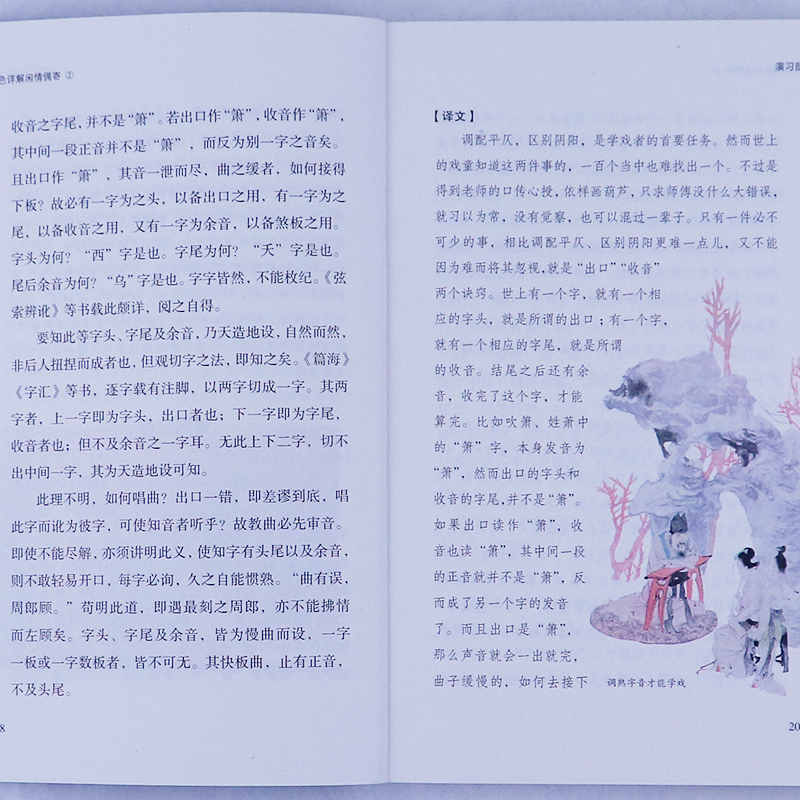 色详解闲情偶寄 ②
收音之字尾，并不是“箫”。若出口作“箫”，收音作“箫”，
其中间一段正音并不是“箫”，而反为别一字之音矣。
且出口作“箫”，其音一泄而尽，曲之缓者，如何接得
下板？故必有一字为之头，以备出口之用，有一字为之
尾，以备收音之用，又有一字为余音，以备煞板之用。
字头为何？“西”字是也。字尾为何？“夭”字是也。
尾后余音为何？“乌”字是也。字字皆然，不能枚纪。《弦
索辨讹》等书载此颇详，阅之自得。
要知此等字头、字尾及余音，乃天造地设，自然而然，
非后人扭捏而成者也，但观切字之法，即知之矣。《篇海》
《字汇》等书，逐字载有注脚，以两字切成一字。其两
字者，上一字即为字头，出口者也；下一字即为字尾，
收音者也；但不及余音之一字耳。无此上下二字，切不
出中间一字，其为天造地设可知。
此理不明，如何唱曲？出口一错，即差谬到底，唱
此字而讹为彼字，可使知音者听乎？故教曲必先审音。
即使不能尽解，亦须讲明此义，使知字有头尾以及余音，
则不敢轻易开口，每字必询，久之自能惯熟。“曲有误，
周郎顾。”苟明此道，即遇最刻之周郎，亦不能拂情
而左顾矣。字头、字尾及余音，皆为慢曲而设，一字
一板或一字数板者，皆不可无。其快板曲，止有正音，
不及头尾。
8
演习部
【译文】
调配平仄，区别阴阳，是学戏者的首要任务。然而世上
的戏童知道这两件事的，一百个当中也难找出一个。不过是
得到老师的口传心授，依样画葫芦，只求师傅没什么大错误，
就习以为常，没有觉察，也可以混过一辈子。只有一件必不
可少的事，相比调配平仄、区别阴阳更难一点儿，又不能
因为难而将其忽视，就是“出口”“收音”
两个诀窍。世上有一个字，就有一个相
应的字头，就是所谓的出口；有一个字，
就有一个相应的字尾，就是所谓
的收音。结尾之后还有余
音，收完了这个字，才能
算完。比如吹箫、姓萧中
的“箫”字，本身发音为
“箫”，然而出口的字头和
收音的字尾，并不是“箫”。
如果出口读作“箫”，收
音也读“箫”，其中间一段
的正音就并不是“箫”，反
而成了另一个字的发音
了。而且出口是“箫”，
那么声音就会一出就完，
曲子缓慢的，如何去接下
调熟字音才能学戏
20